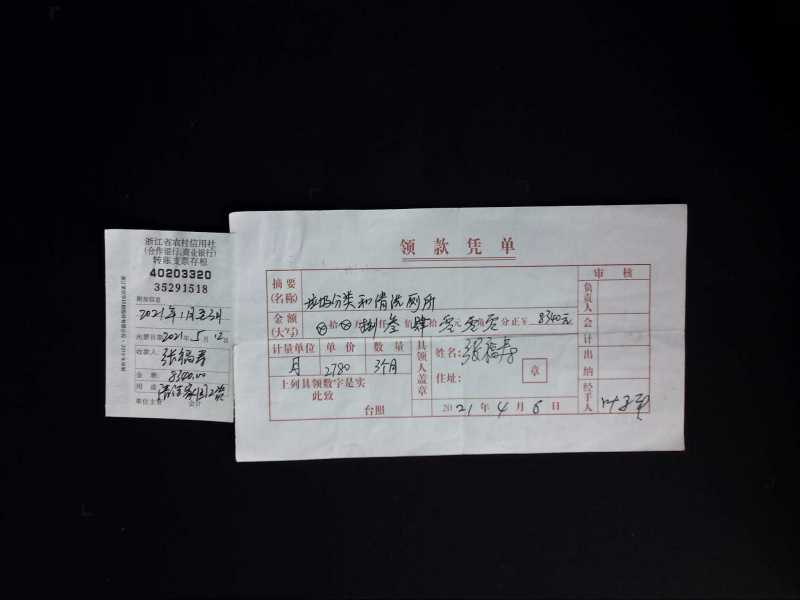 浙江省农村信用社
(合作银行、商业银行)
转账支票存根
40203320
35291518
附加信息
2021年1月至3月
出票日期2021年5月12日
收款人:张福寿
金 额:8340.00
用 途:清洁家园工资
单位主管 会计
领款凭单
摘要(名称) 垃圾分类和清洗厕所
金额(大写) ⊗拾⊗万 仟捌佰叁拾肆 零元零角零分正¥ 8340元
计量单位 单价 数量
月 2780 3个月
上列具领数字是实
此致
台照
具领人盖章
姓名:张福寿
住址:
章
2021年4月6日
审核
负责人
会计
出纳
经手人